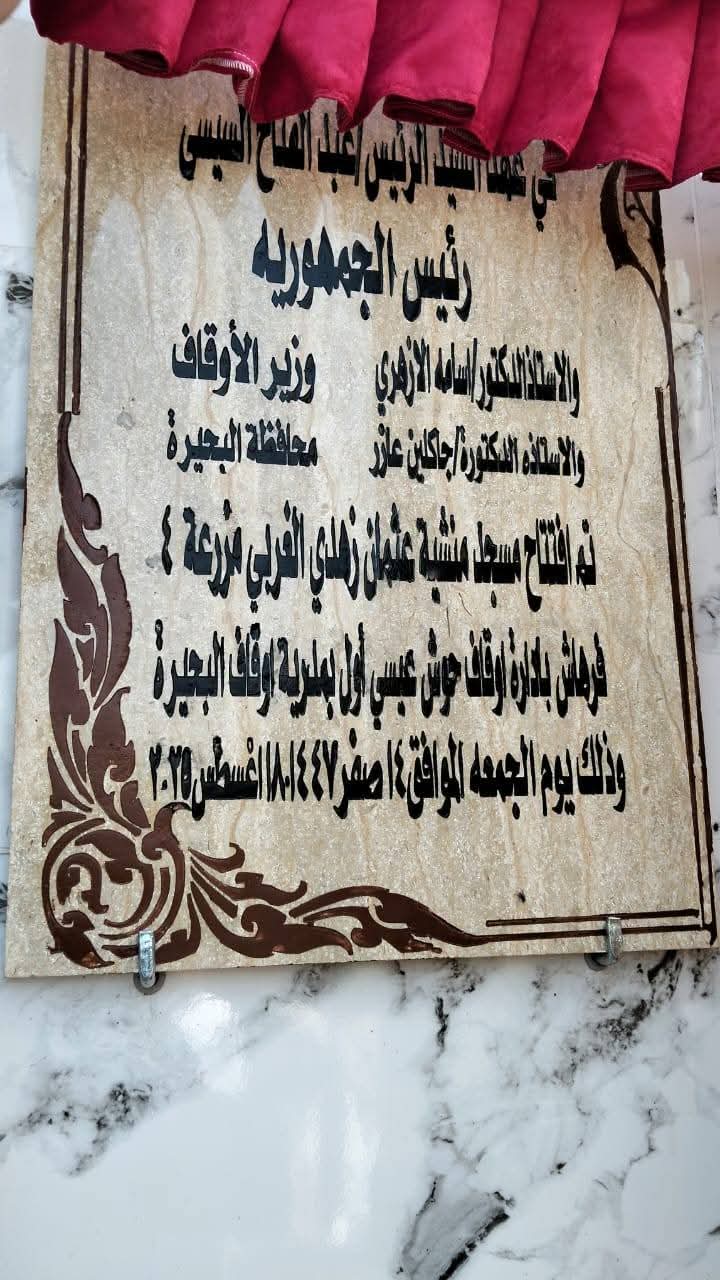 في عهد السيد الرئيس/عبد الفتاح السيسى
رئيس الجمهوريه
والاستاذالدكتور/اسامه الازهري وزير الأوقاف
والاستاذه الدكتورة/جاكلين عازر محافظة البحيرة
تم افتتاح مسجد منشية عثمان زهدي الغربي مزرعة ٤
فرهاش بادارة اوقاف حوش عيسي أول بمديرية اوقاف البحيرة
وذلك يوم الجمعه الموافق١٤ صفر١٤٤٧-٨ اغسطس٢٠٢٥